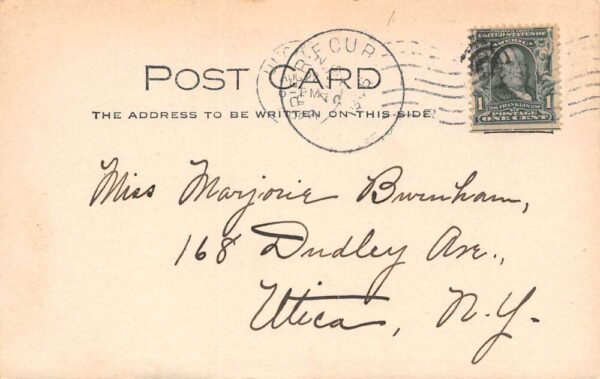 POST CARD
THE ADDRESS TO BE WRITTEN ON THIS SIDE.
UNITED STATES OF
AMERICA
1
1
FRANKLIN
POSTAGE
ONE CENT
Miss Marjorie Burnham,
168 Dudley Ave.,
Utica, N.Y.